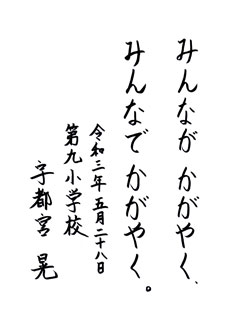 みんなが かがやく、
みんなで かがやく。
令和三年 五月二十八日
第九小学校
宇都宮 晃